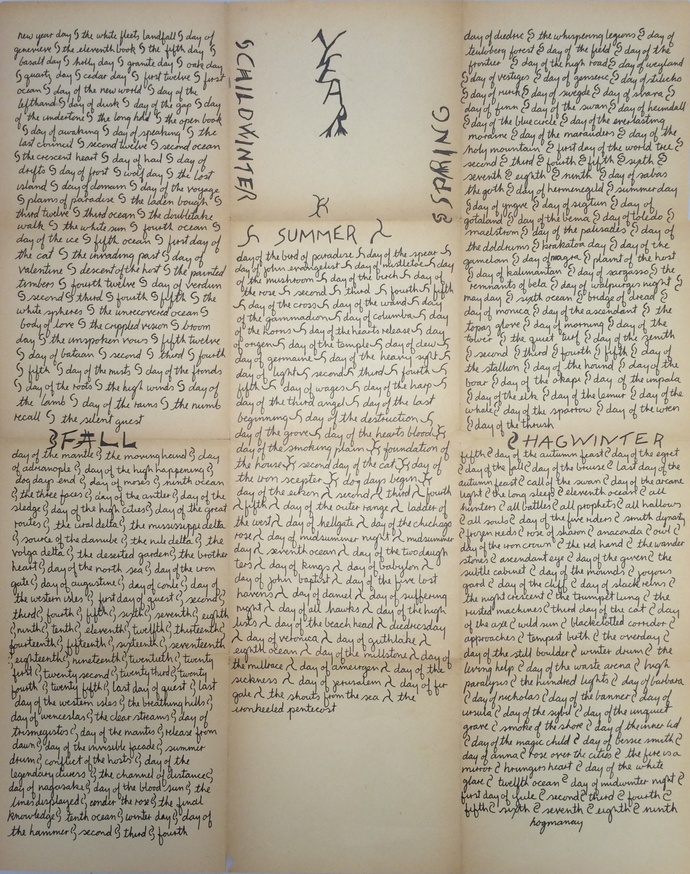 YEAR
CHILDWINTER
new year day the white fleets landfall day of
genevieve the eleventh book the fifth day
basalt day holly day granite day oak day
quartz day cedar day first twelve first
ocean day of the new world day of the
lefthand day of dusk day of the gap day
of the undertone the long hold the open book
day of awaking day of speaking the
last council second twelve second ocean
the crescent heart day of hail day of
drifts day of frost wolf day the lost
island day of domain day of the voyage
plains of paradise the laden bough
third twelve third ocean the doubletake
walk the white sun fourth ocean day of
the ice fifth ocean first day of
the cat the invading past day of
valentine descent of the host the painted
timbers fourth twelve day of verdun
second third fourth fifth the
white spheres the unrecovered ocean
body of love the crippled vision broom
day the unspoken vows fifth twelve
day of bataan second third fourth
fifth day of the mists day of the fronds
day of the roots the high winds day of
the lamb day of the rains the numb
recall the silent guest
SPRING
day of diedric the whispering legions day of
teutoberg forest day of the field day of the
frontier day of the high road day of weyland
day of vestiges day of genseric day of stilicho
day of rurik day of swegde day of sbara
day of finn day of the swan day of heimdall
day of the blue circle day of the everlasting
moraine day of the marauders day of the
holy mountain first day of the world tree
second third fourth fifth sixth
seventh eighth ninth day of sabas
the goth day of hermenegild summer day
day of yngve day of sigtun day of
gotaland day of the bema day of toledo
maelstrom day of the palisades day of
the doldrums krakatoa day day of the
gamelan day of magra plaint of the host
day of kalimantan day of sargasso the
remnants of bela day of walpurgis night
may day sixth ocean bridge of dread
day of monica day of the ascendant the
topaz glove day of morning day of the
tower the quiet turf day of the zenith
second third fourth fifth day of
the stallion day of the hound day of the
boar day of the okapi day of the impala
day of the elk day of the lemur day of the
whale day of the sparrow day of the wren
day of the thrush
SUMMER
day of the bird of paradise day of the spear
day of john evangelist day of mistletoe day
of the mushroom day of the birch day of
the rose second third fourth fifth
day of the cross day of the wand day
of the gammadion day of columba day of
the horns day of the hearts release day
of origen day of the temple day of dew
day of germaine day of the heavy sight
day of light second third fourth
fifth day of wages day of the harp
day of the third angel day of the last
beginning day of the destruction
day of the grove day of the hearts blood
day of the smoking plain foundation of
the house second day of the cat day of
the iron scepter dog days begin
day of the eikon second third fourth
fifth day of the outer range ladder of
the west day of hellgate day of the chichago
rose day of midsummer night midsummer
day seventh ocean day of the two daugh
ters day of kings day of babylon
day of john baptist day of the five lost
havens day of daniel day of suffering
night day of all hawks day of the high
luxs day of the beach head diedricsday
day of veronica day of guthlake
eighth ocean day of the millstone day of
the millrace day of amairgen day of the
sickness day of jerusalem day of fer
gale the shouts from the sea the
ironheeled pentecost
FALL
day of the mantle the moving hand day
of adrianople day of the high happening
dog days end day of moses ninth ocean
the three faces day of the antler day of the
sledge day of the high cities day of the great
routes the ural delta the mississippi delta
source of the danube the nile delta the
volga delta the deserted garden the brother
heart day of the north sea day of the iron
gate day of augustine day of conle day of
the western isles first day of quest second
third fourth fifth sixth seventh eighth
ninth tenth eleventh twelfth thirteenth
fourteenth fifteenth sixteenth seventeenth
eighteenth nineteenth twentieth twenty
first twenty second twenty third twenty
fourth twenty fifth last day of quest last
day of the western isles the breathing hills
day of wenceslas the clear streams day of
trismegistus day of the mantis release from
dawn day of the invisible facade summer
drum conflict of the hosts day of the
legendary rivers the channel of distance
day of nagasaki day of the blood sun the
lines displayed under the rose the final
knowledge tenth ocean winter day day of
the hammer second third fourth
HAGWINTER
fifth day of the autumn feast day of the egret
day of the fall day of the bruise last day of the
autumn feast call of the swan day of the arcane
light the long sleep eleventh ocean all
hunters all battles all prophets all hallows
all souls day of the five riders smith dynasty
frozen reeds rose of sharon anaconda owl
day of the iron crown the red hand the wander
stones ascendant eye day of the given the
subtle cabinet day of the maenads joyous
gard day of the cliff day of slack reins
the night crescent the trumpet lung the
rusted machines third day of the cat day
of the axe wild sun blackclotted corridor
approaches tempest birth the overday
day of the still boulder winter drum the
living help day of the waste arena high
paralysis the hundred lights day of barbara
day of nicholas day of the banner day of
ursula day of the sybil day of the unquiet
grave smoke of the shore day of the inner lid
day of the magic child day of bessie smith
day of anna rose over the cities the fire is a
mirror hrungirs heart day of the white
glare twelfth ocean day of midwinter night
first day of yule second third fourth
fifth sixth seventh eighth ninth
hogmanay